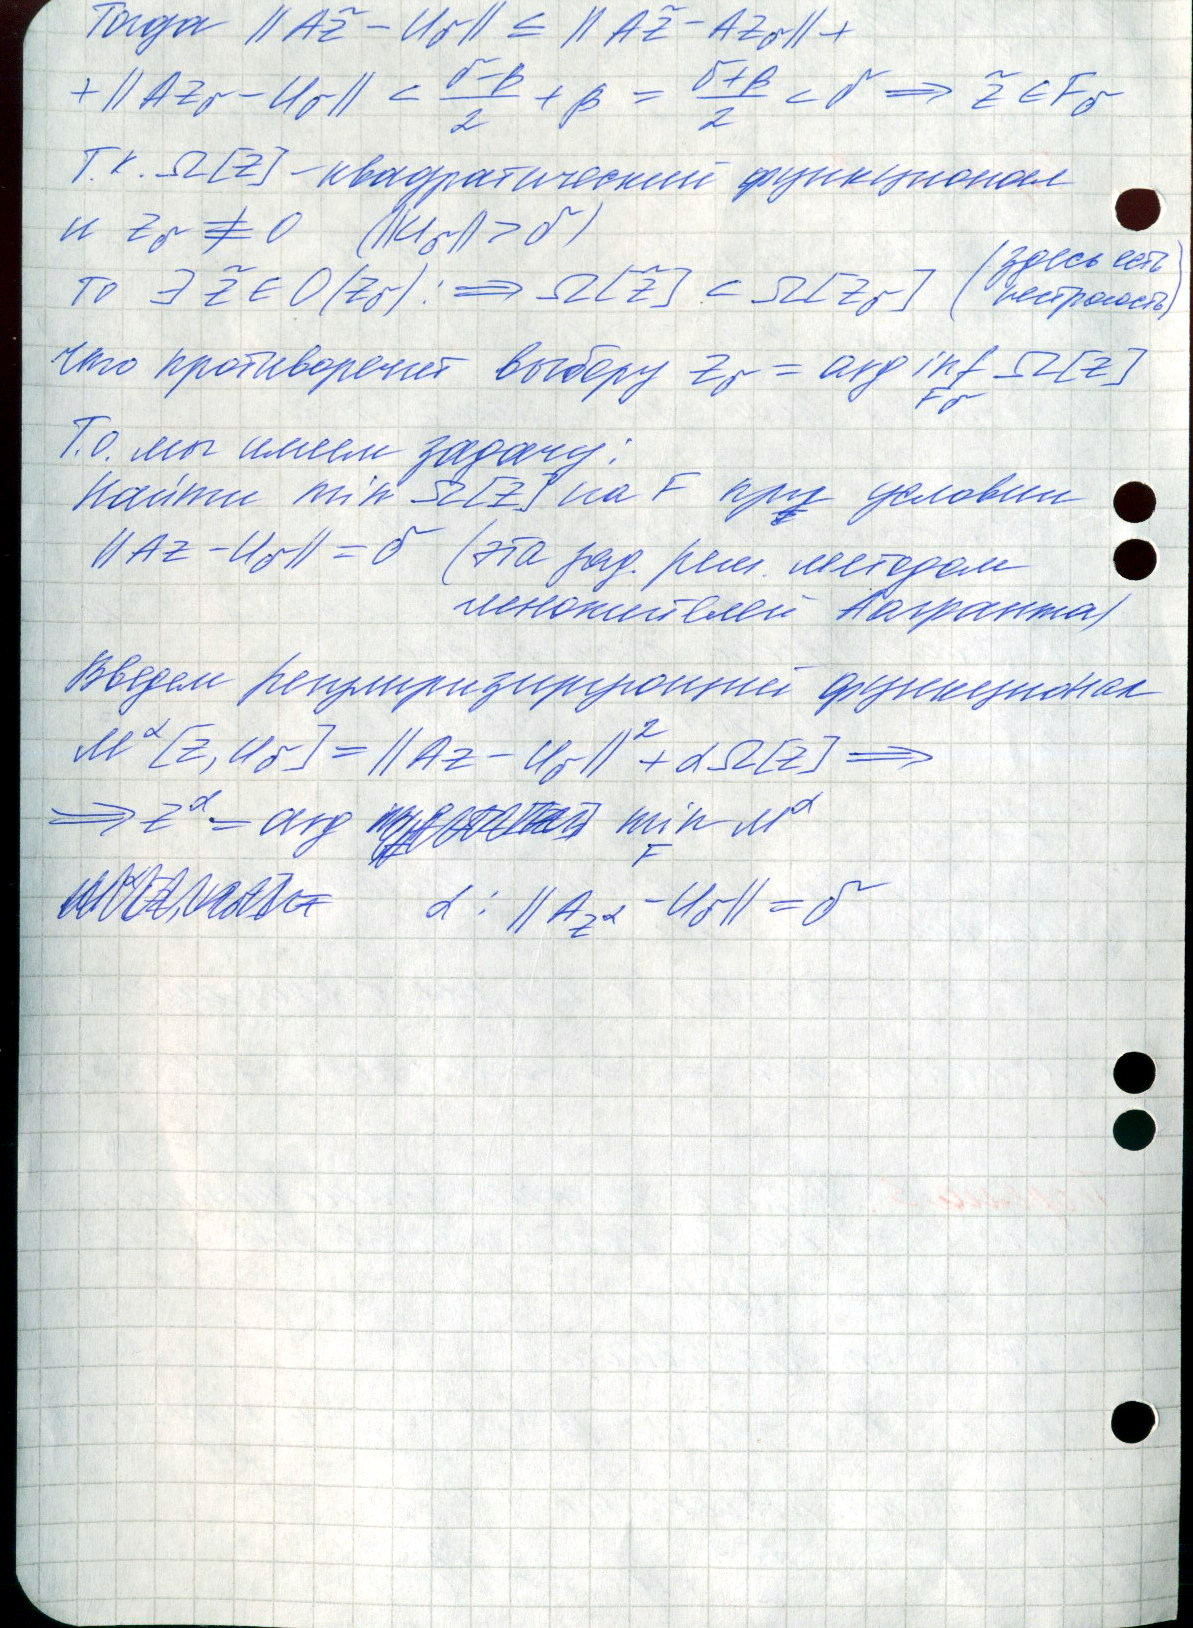 Тогда ||Az̃ - U_δ|| ≤ ||Az̃ - Az_δ|| +
+ ||Az_δ - U_δ|| < (δ-β)/2 + β = (δ+β)/2 < δ ⟹ z̃ ∈ F_δ
Т.к. Ω[z] - квадратический функционал
и z_δ ≢ 0 (||U_δ|| > δ)
то ∃ z̃ ∈ O(z_δ): ⟹ Ω[z̃] < Ω[z_δ] (здесь есть
нестрогость)
Что противоречит выбору z_δ = arg inf_{F_δ} Ω[z]
Т.о. мы имеем задачу:
Найти min Ω[z] на F при условии
||Az - U_δ|| = δ (эта зад. реш. методом
множителей Лагранжа)
Введем регуляризирующий функционал
M^α[z, U_δ] = ||Az - U_δ||² + αΩ[z] ⟹
⟹ z^α = arg min_F M^α
α: ||Az^α - U_δ|| = δ